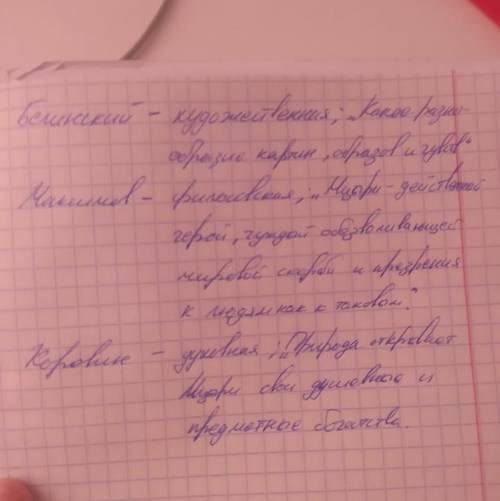 Белинский – художественная; „Какое разно-
образие картин, образов и чувств"
Максимов – философская; „Мцыри – действенный
герой, чуждой обезволивающей
мировой скорби и презрения
к людям как к таковым."
Коровин – духовная; „Природа открывает
Мцыри свои духовного и
предметные богатства.